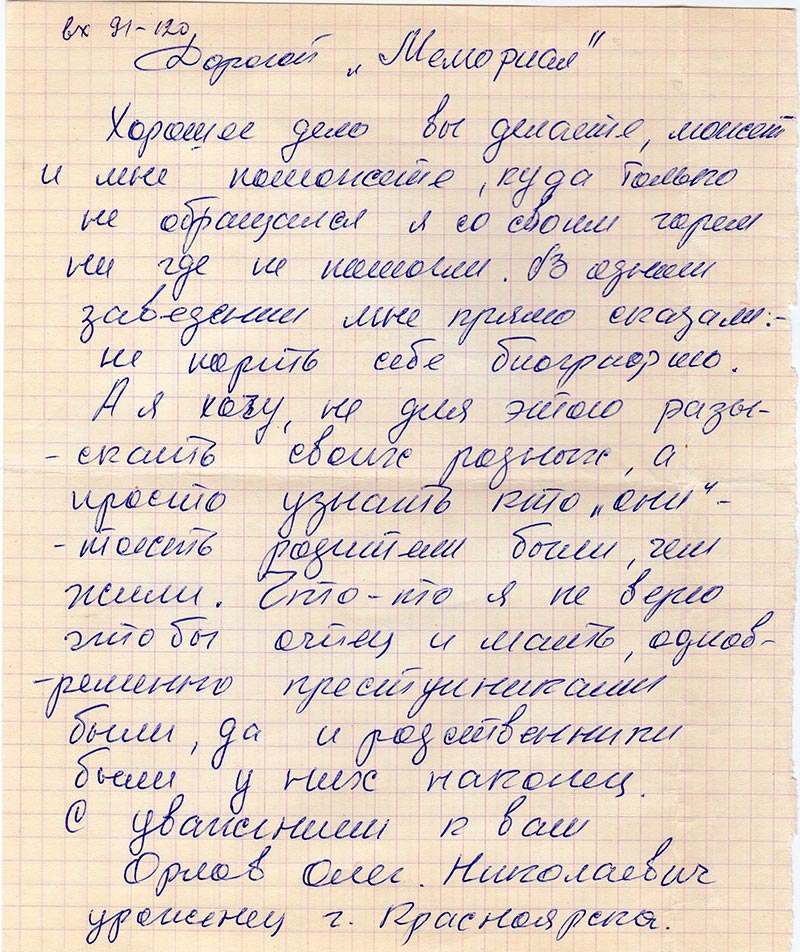 вх 91-120
Дорогой „Мемориал"
Хорошее дело вы делаете, может
и мне поможете, куда только
не обращался я со своим горем
ни где не помогли. В одном
заведении мне прямо сказали:-
не портить себе биографию.
А я хочу, не для этого разы-
-скать своих родных, а
просто узнать кто „они" -
-тоесть родители были, чем
жили. Что-то я не верю
что бы отец и мать, однов-
-ременно преступниками
были, да и родственники
были у них наконец.
С уважением к вам
Орлов Олег. Николаевич
уроженец г. Красноярска.